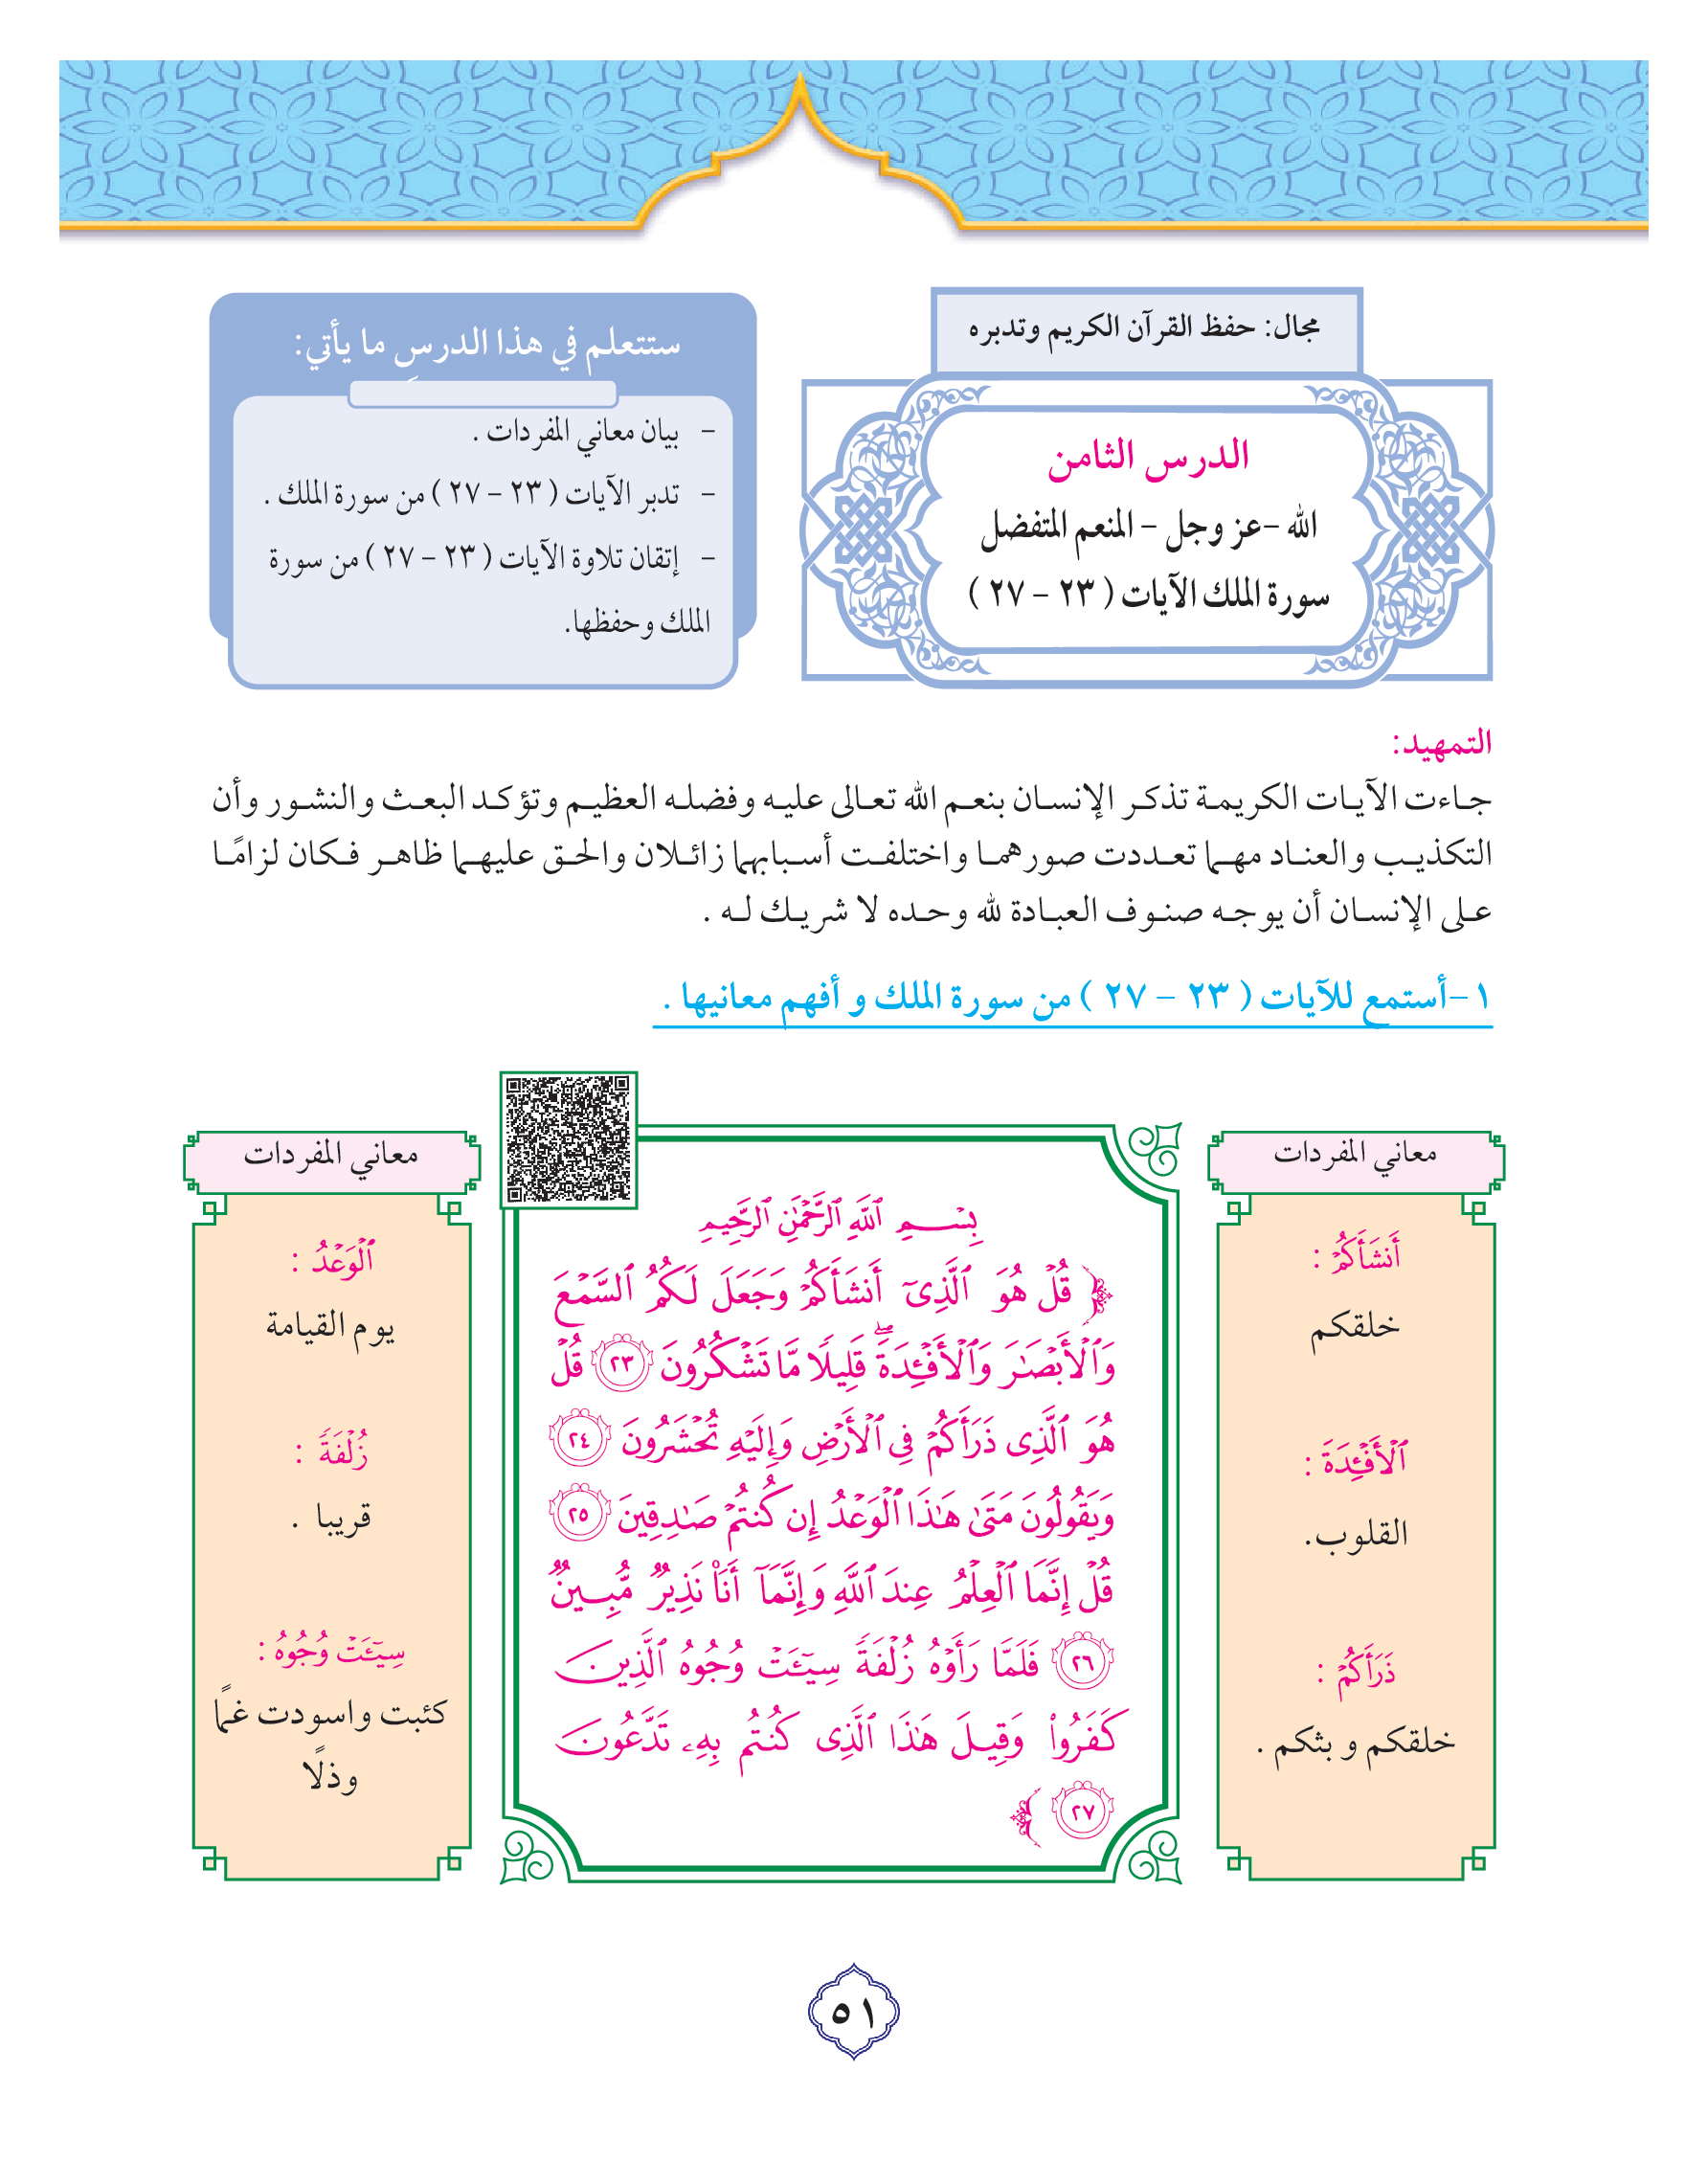 مجال: حفظ القرآن الكريم وتدبره
الدرس الثامن
الله -عز وجل - المنعم المتفضل
سورة الملك الآيات ( ٢٣ - ٢٧ )
ستتعلم في هذا الدرس ما يأتي:
- بيان معاني المفردات .
- تدبر الآيات ( ٢٣ - ٢٧ ) من سورة الملك .
- إتقان تلاوة الآيات ( ٢٣ - ٢٧ ) من سورة
الملك وحفظها.
التمهيد:
جاءت الآيات الكريمة تذكر الإنسان بنعم الله تعالى عليه وفضله العظيم وتؤكد البعث والنشور وأن
التكذيب والعناد مهما تعددت صورهما واختلفت أسبابهما زائلان والحق عليهما ظاهر فكان لزامًا
على الإنسان أن يوجه صنوف العبادة لله وحده لا شريك له .
١-أستمع للآيات ( ٢٣ - ٢٧ ) من سورة الملك و أفهم معانيها .
معاني المفردات
أَنشَأَكُمْ :
خلقكم
ٱلْأَفْـِٔدَةَ :
القلوب.
ذَرَأَكُمْ :
خلقكم و بثكم .
بِسْمِ ٱللَّهِ ٱلرَّحْمَٰنِ ٱلرَّحِيمِ
﴿ قُلْ هُوَ ٱلَّذِىٓ أَنشَأَكُمْ وَجَعَلَ لَكُمُ ٱلسَّمْعَ
وَٱلْأَبْصَٰرَ وَٱلْأَفْـِٔدَةَ ۖ قَلِيلًا مَّا تَشْكُرُونَ ٢٣ قُلْ
هُوَ ٱلَّذِى ذَرَأَكُمْ فِى ٱلْأَرْضِ وَإِلَيْهِ تُحْشَرُونَ ٢٤
وَيَقُولُونَ مَتَىٰ هَٰذَا ٱلْوَعْدُ إِن كُنتُمْ صَٰدِقِينَ ٢٥
قُلْ إِنَّمَا ٱلْعِلْمُ عِندَ ٱللَّهِ وَإِنَّمَآ أَنَا۠ نَذِيرٌ مُّبِينٌ
٢٦ فَلَمَّا رَأَوْهُ زُلْفَةً سِيٓـَٔتْ وُجُوهُ ٱلَّذِينَ
كَفَرُوا۟ وَقِيلَ هَٰذَا ٱلَّذِى كُنتُم بِهِۦ تَدَّعُونَ
٢٧ ﴾
معاني المفردات
ٱلْوَعْدُ :
يوم القيامة
زُلْفَةً :
قريبا .
سِيٓـَٔتْ وُجُوهُ :
كئبت واسودت غمًا
وذلًا
٥١